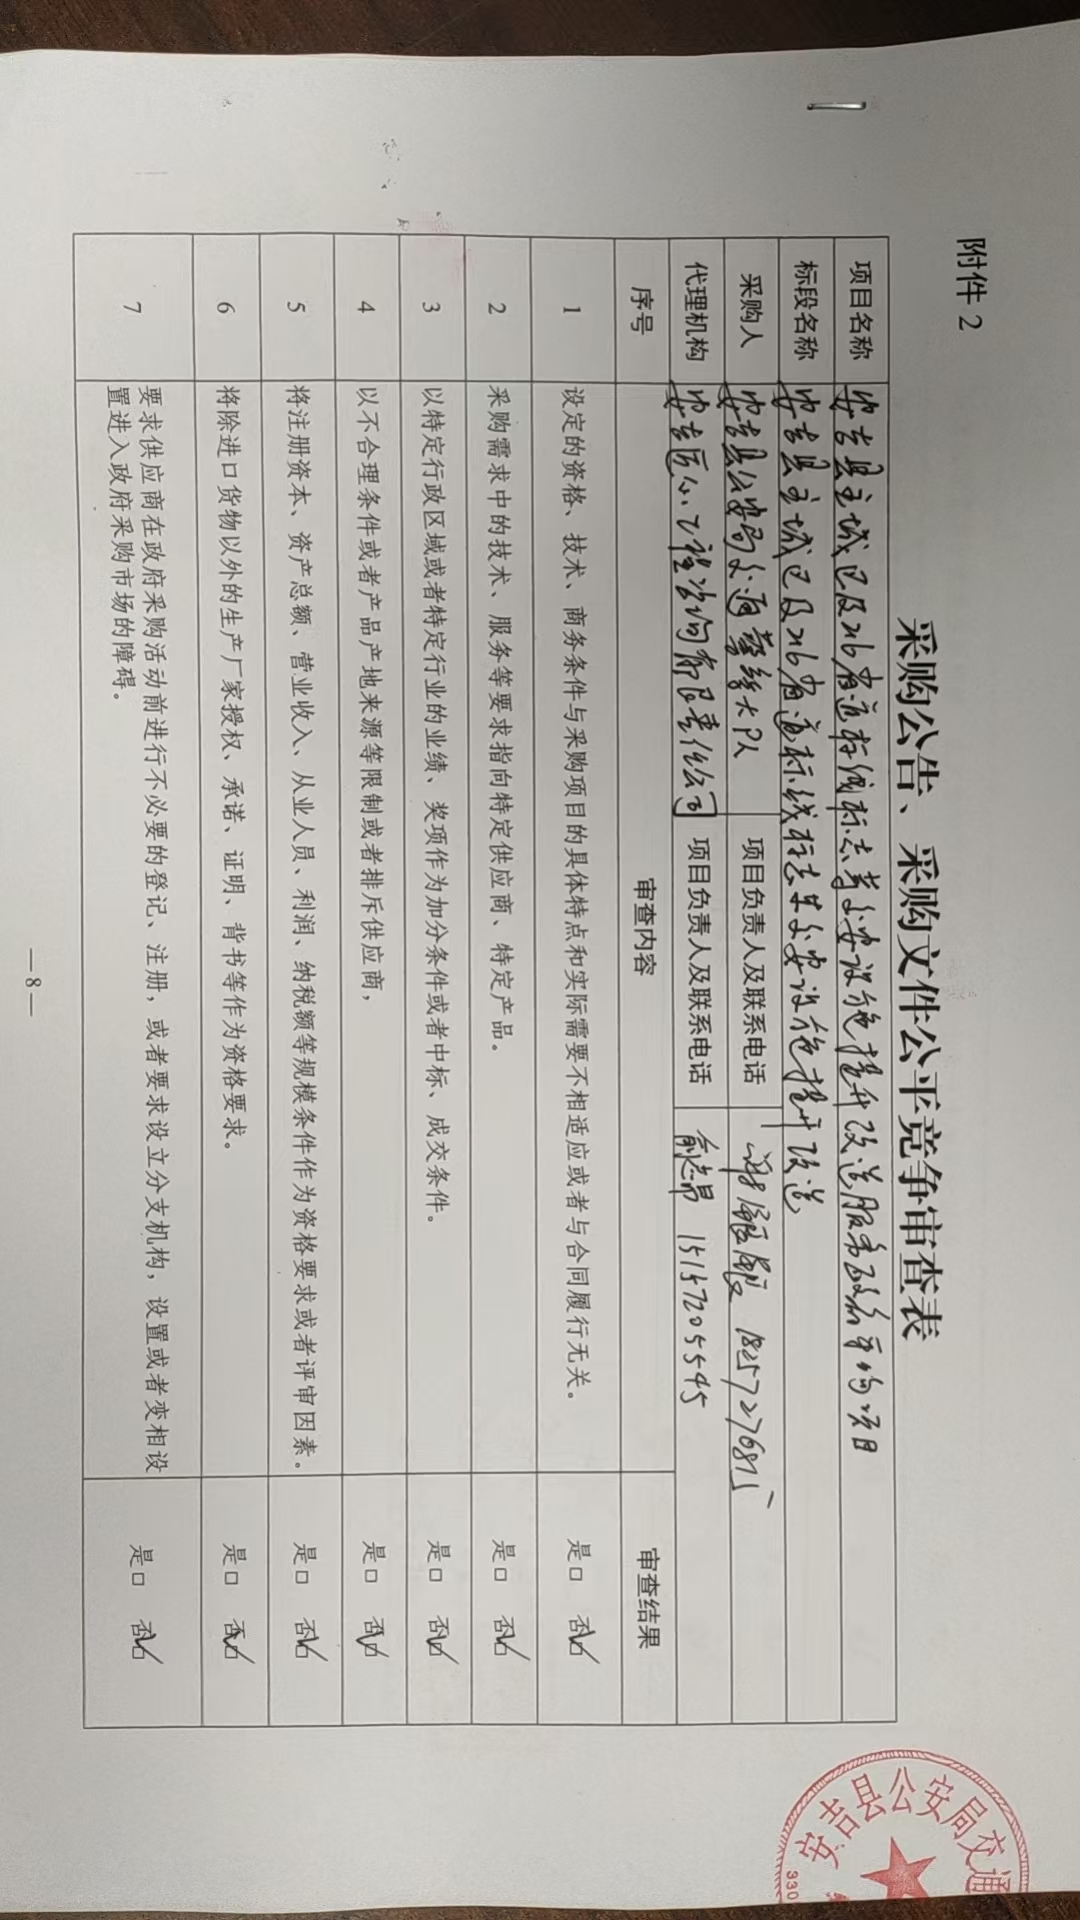 附件 2
采购公告、采购文件公平竞争审查表
项目名称 安吉县主城区及216省道标线标志等交安设施提升改造服务政府采购项目
标段名称 安吉县主城区及216省道标线标志等交安设施提升改造
采购人 安吉县公安局交通警察大队 项目负责人及联系电话 18257276815
代理机构 安吉匠心工程咨询有限责任公司 项目负责人及联系电话 15157205545
序号 审查内容 审查结果
1 设定的资格、技术、商务条件与采购项目的具体特点和实际需要不相适应或者与合同履行无关。 是□ 否☑
2 采购需求中的技术、服务等要求指向特定供应商、特定产品。 是□ 否☑
3 以特定行政区域或者特定行业的业绩、奖项作为加分条件或者中标、成交条件。 是□ 否☑
4 以不合理条件或者产品产地来源等限制或者排斥供应商， 是□ 否☑
5 将注册资本、资产总额、营业收入、从业人员、利润、纳税额等规模条件作为资格要求或者评审因素。 是□ 否☑
6 将除进口货物以外的生产厂家授权、承诺、证明、背书等作为资格要求。 是□ 否☑
7 要求供应商在政府采购活动前进行不必要的登记、注册，或者要求设立分支机构，设置或者变相设
置进入政府采购市场的障碍。 是□ 否☑
安吉县公安局交通
330
—8—